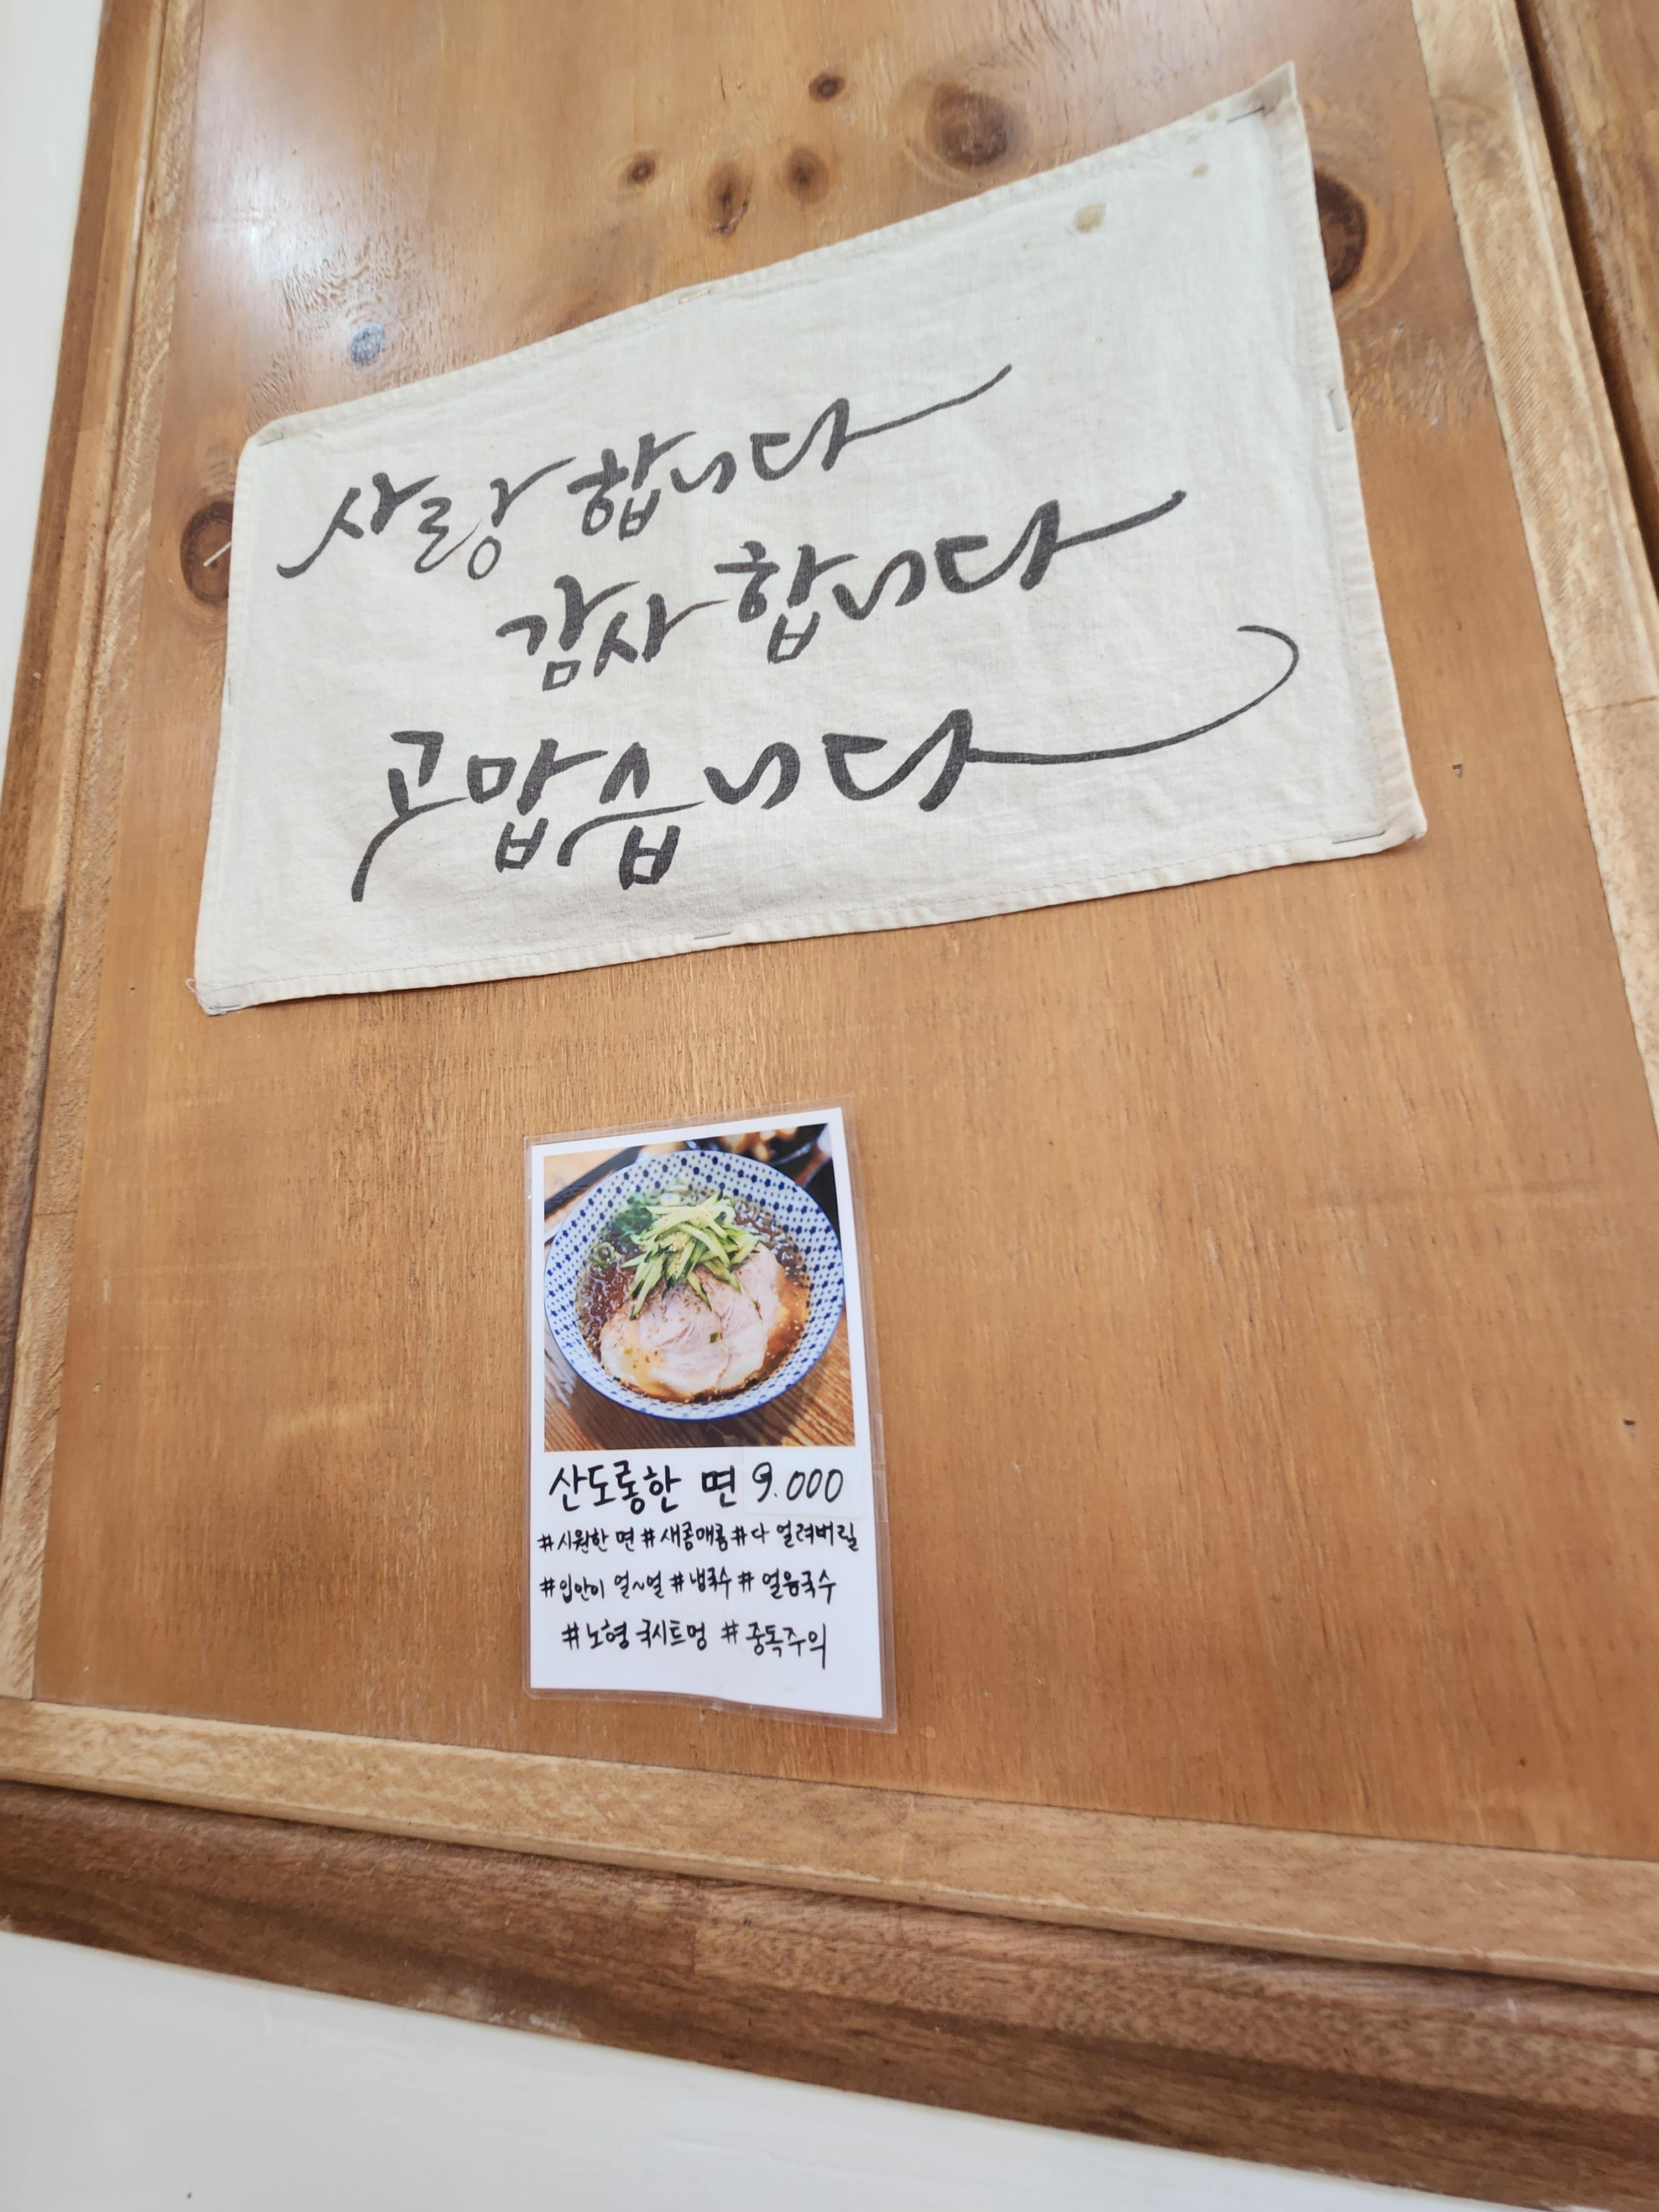 사랑합니다
감사합니다
고맙습니다
산도롱한 면 9.000
#시원한 면 #새콤매콤 #다 얼려버릴
#입안이 얼~얼 #냉국수 #얼음국수
#노형 국시트멍 #중독주의